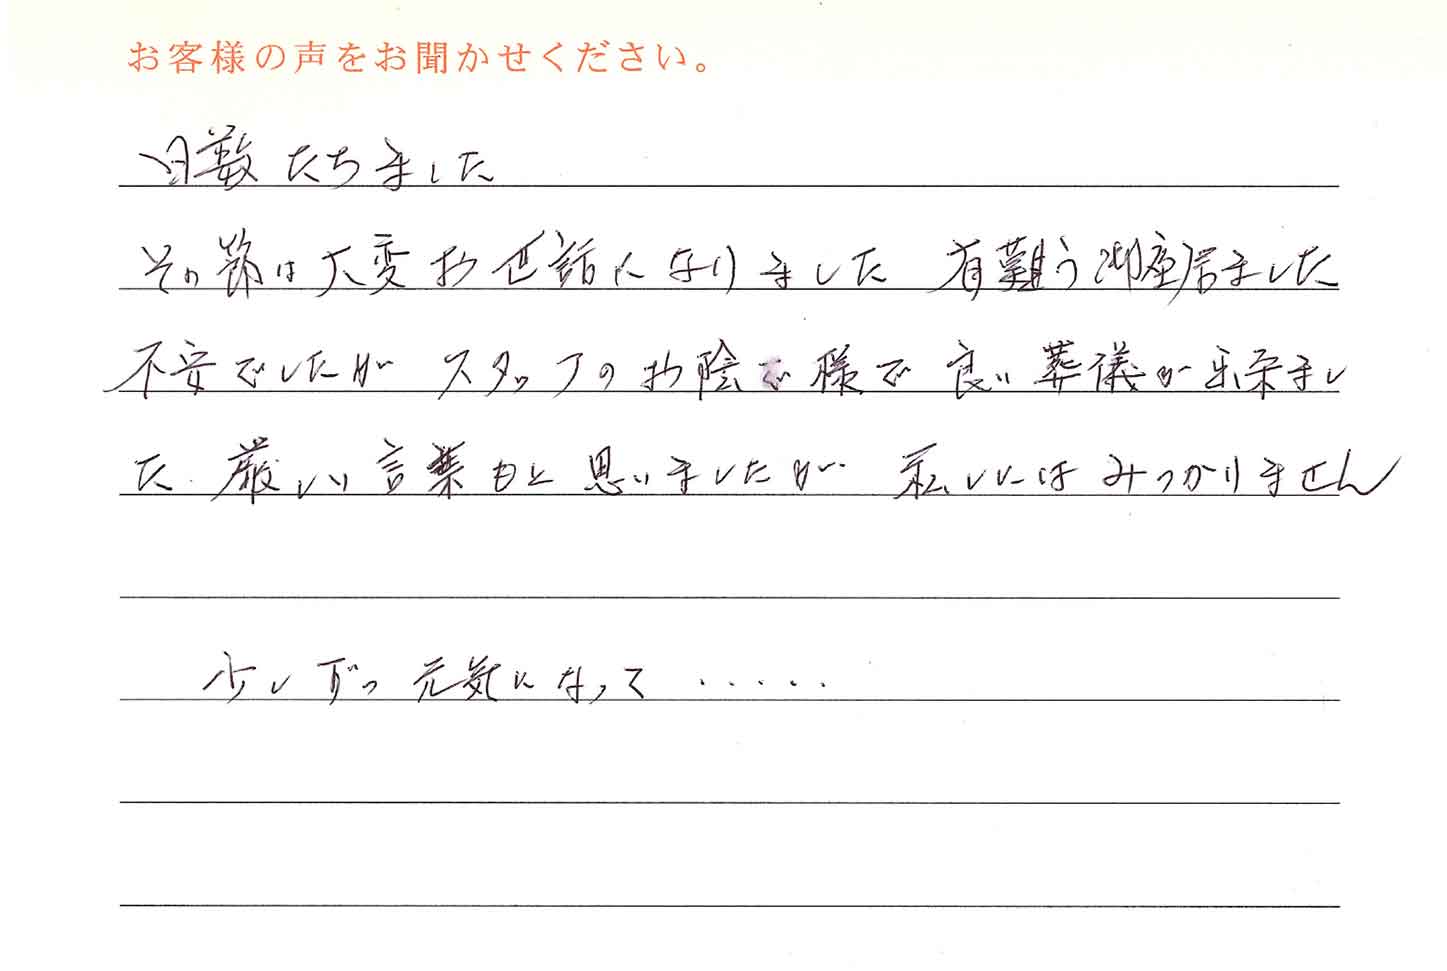 お客様の声をお聞かせください。
日数たちました
その節は大変お世話になりました 有難う御座居ました
不安でしたが スタッフのお陰様で 良い葬儀が出来まし
た 厳しい言葉もと 思いましたが 私しにはみつかりません
少しずつ 元気になって ・・・・・